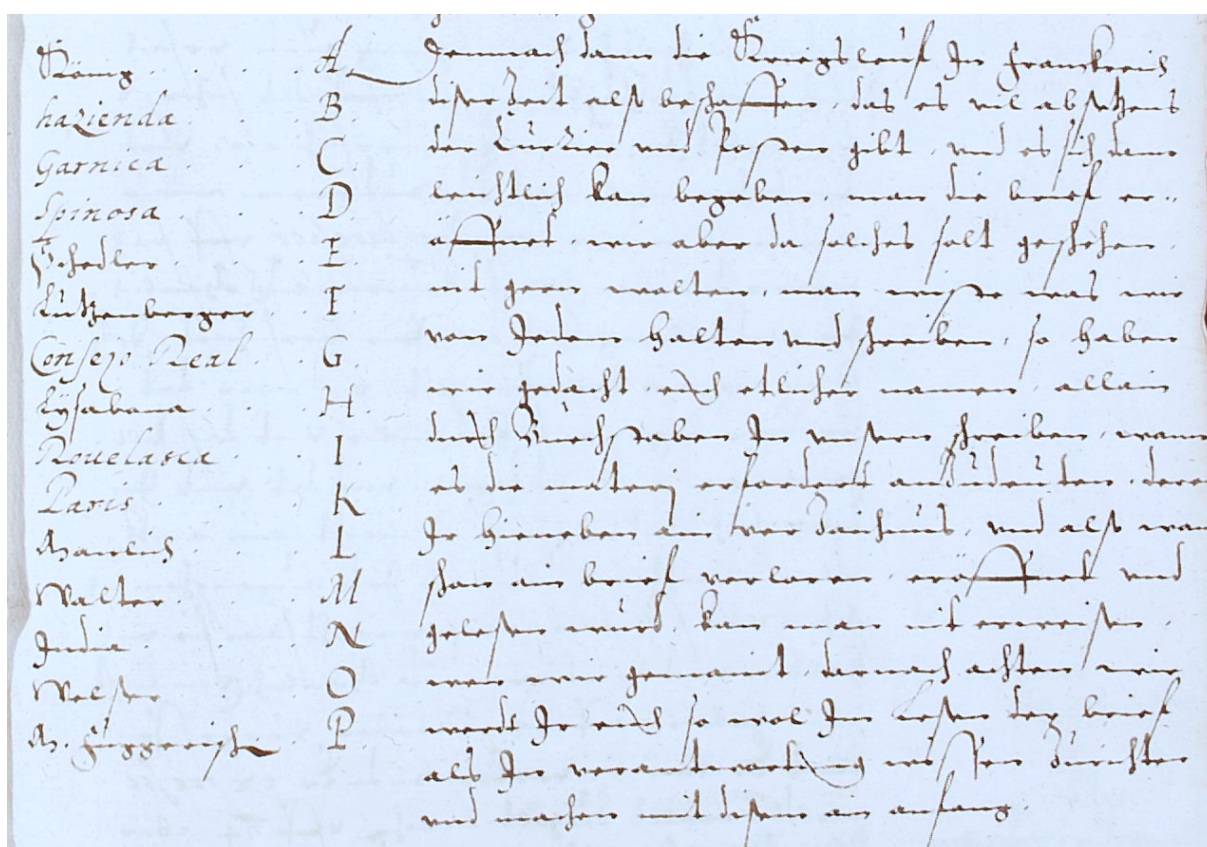 König . . . A
hazienda . . . B
Garnica . . . C
Spinosa . . . D
Schedler . . . E
Lutzenberger . F
Consejo Real . G
Lysabona . . H
Rouelasca . . I
Paris . . . K
Manlich . . L
Walter . . . M
India . . . N
Welser . . . O
M. Fuggerische P
Demnach dann die Kriegsleuf In Franckreich
diser Zeit also beschaffen, das es vil absetzens
der Curier und Posten gibt, und es sich dann
leichtlich kan begeben, man die brief er¬
öffnet, wir aber da solches solt geschehen,
nit gern wolten, man wiste was wir
von Jedem halten und schreiben, so haben
wir gedacht, euch etlicher namen, allain
durch Buechstaben In unsern schreiben, wann
es die materi erfordert anzudeuten, deren
Ir hieneben ain verzaichnus, und also wan
schon ain brief verloren, eröffnet und
gelesen wurd, kan man nit erweisen,
wen wir gemaint, darnach achten wir
werdt Ir euch so wol Im lesen der brief
als In verantwortung wissen zurichten
und machen mit disem am anfang.